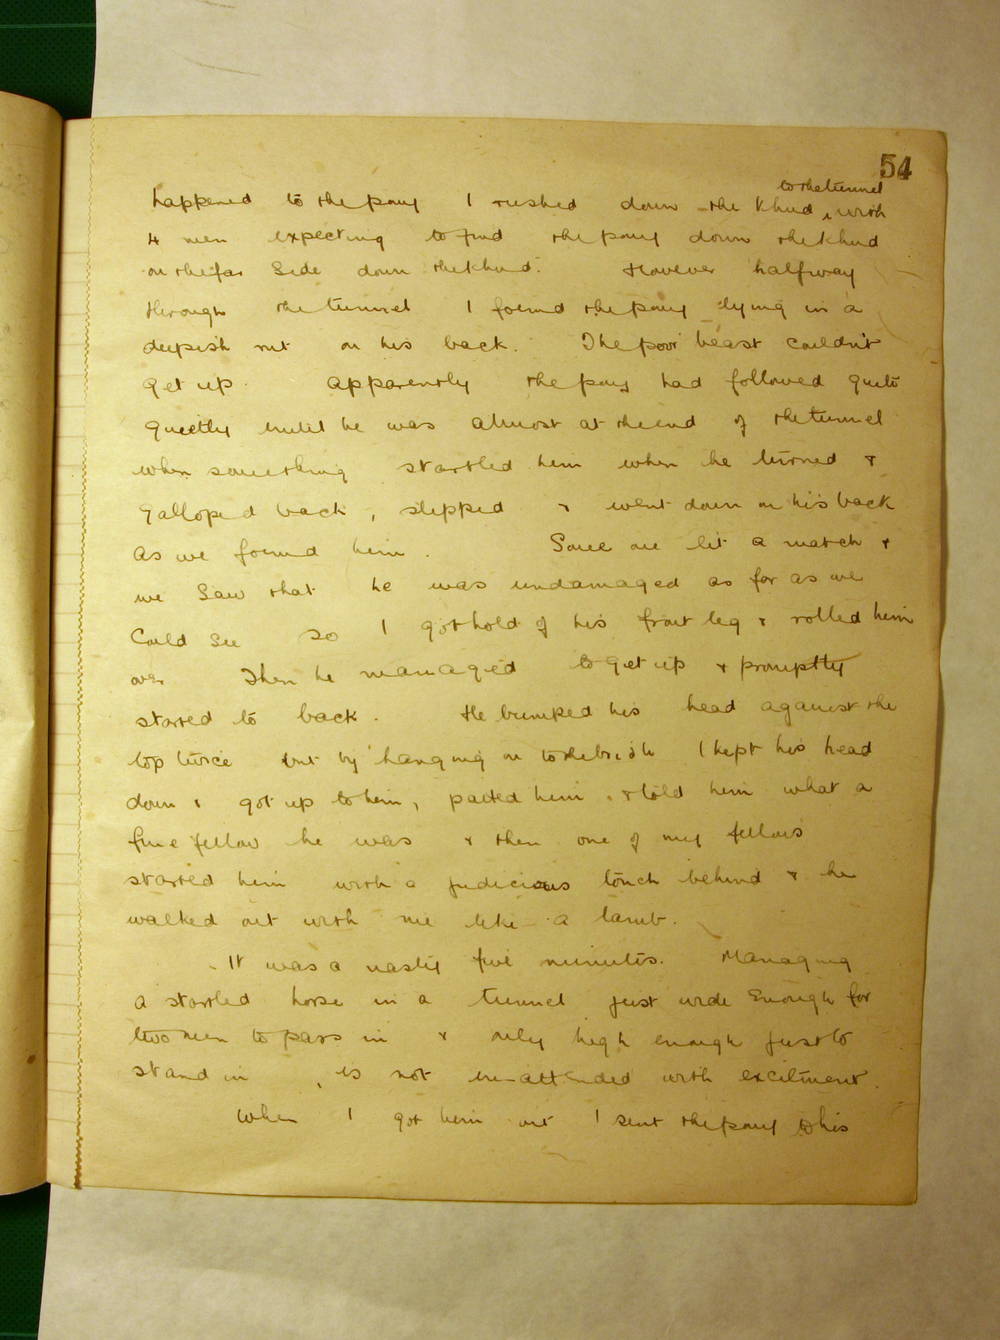 54
to the tunnel
happened to the pony I rushed down the Khud, with
4 men expecting to find the pony down the khud
on the far side down the khud. However halfway
through the tunnel I found the pony lying in a
deepish rut on his back. The poor beast couldn't
get up. Apparently the pony had followed quite
quietly until he was almost at the end of the tunnel
when something startled him when he turned &
galloped back, slipped & went down on his back
as we found him. Some one lit a match &
we saw that he was undamaged as far as we
could see so I got hold of his front leg & rolled him
over Then he managed to get up & promptly
started to back. He bumped his head against the
top twice but by hanging on to the bridle I kept his head
down & got up to him, patted him & told him what a
fine fellow he was & then one of my fellows
started him with a judicious touch behind & he
walked out with me like a lamb.
It was a nasty five minutes. Managing
a startled horse in a tunnel just wide enough for
two men to pass in & only high enough just to
stand in, is not un-attended with excitment.
When I got him out I sent the pony to his